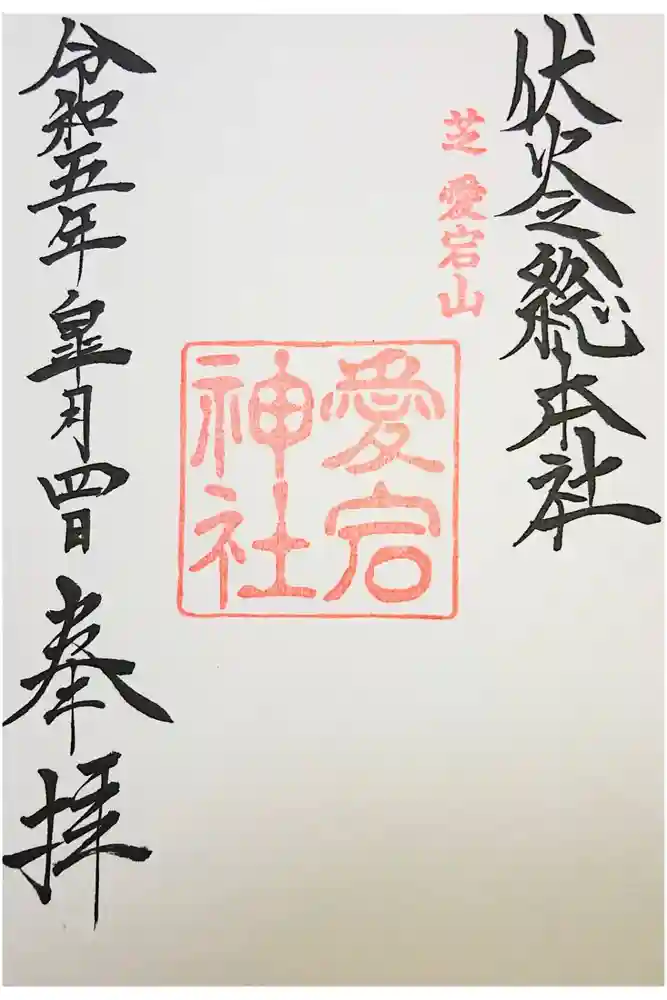 伏火之総本社
芝 愛宕山
愛宕
神社
令和五年皐月四日
奉拝